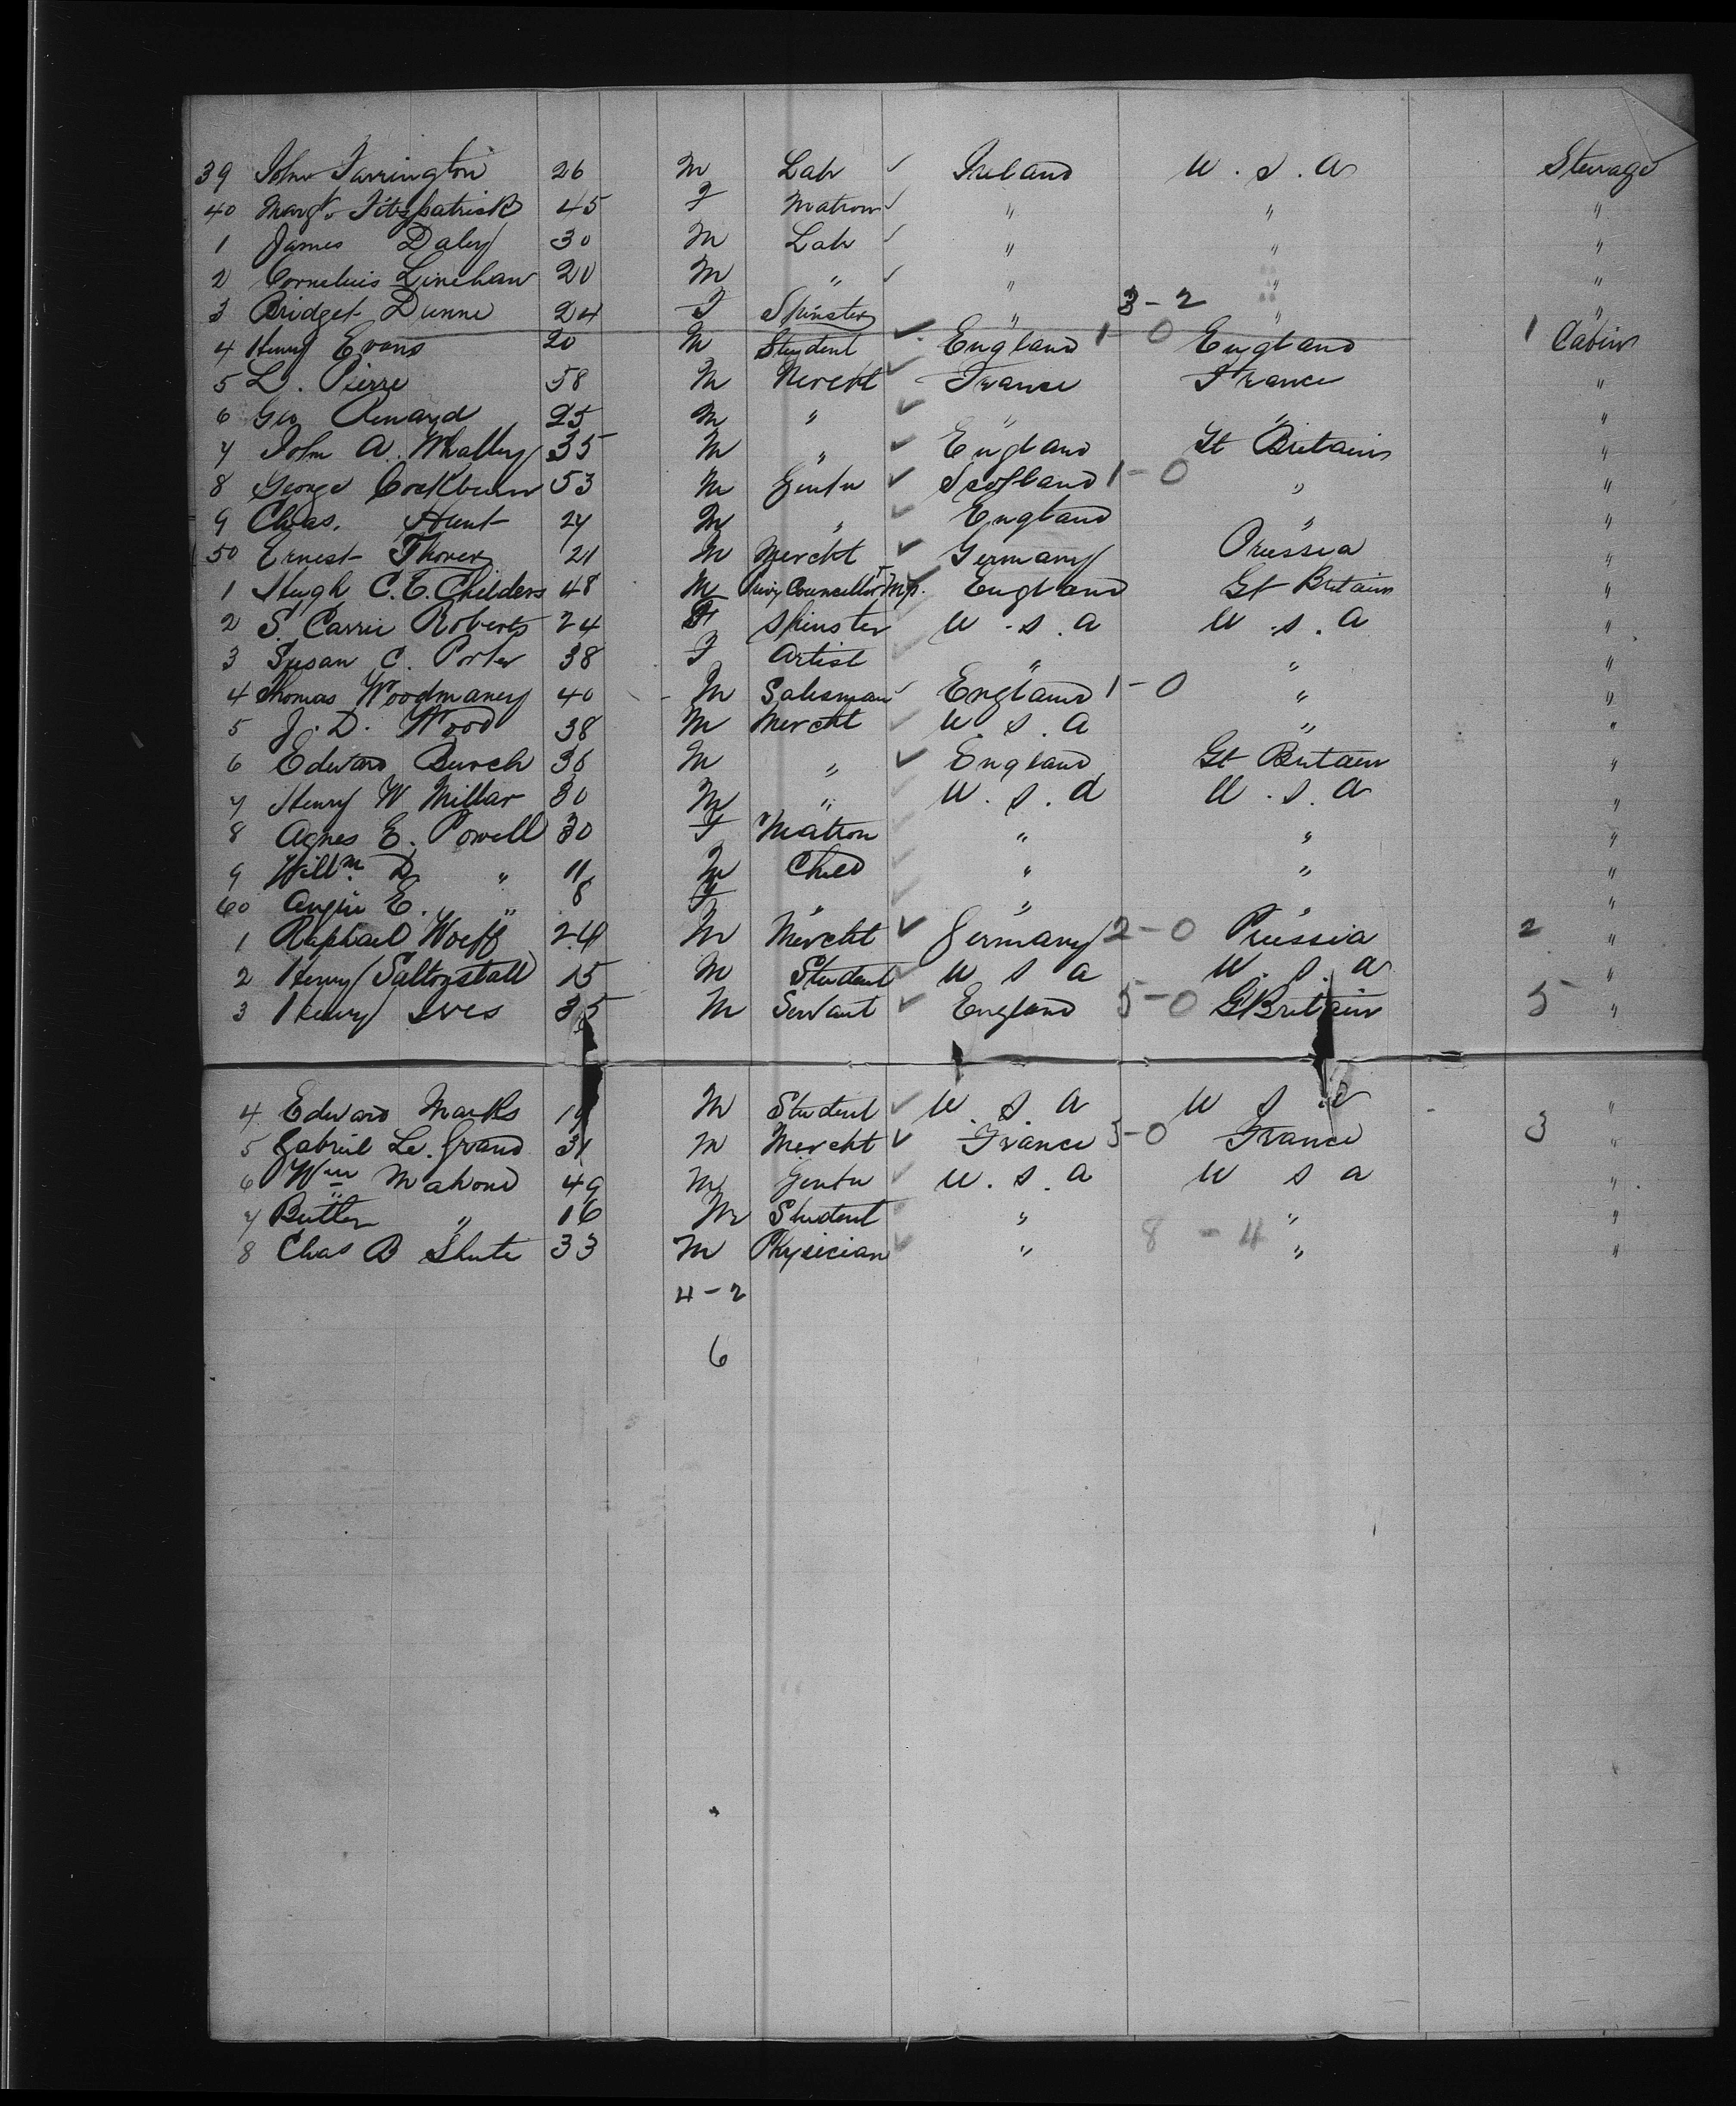 39 John Farrington 26 M Lab ✓ Ireland U.S.A Steerage
40 Margt Fitzpatrick 45 F Matron ✓ " " "
1 James Daley 30 M Lab ✓ " " "
2 Cornelius Linehan 20 M " ✓ " " "
3 Bridget Dunne 24 F Spinster " 3-2 " "
4 Henry Evans 20 M Student ✓ England 1-0 England 1 Cabin
5 L. Pierre 58 M Mercht ✓ France France "
6 Geo Renard 25 M " ✓ " " "
7 John A. Whalley 35 M " ✓ England Gt Britain "
8 George Cockburn 53 M Gentn ✓ Scotland 1-0 " "
9 Chas. Hunt 27 M " ✓ England " "
50 Ernest 21 M Mercht ✓ Germany Prussia "
1 Hugh C.E. Childers 48 M Privy Councillor & M.P. ✓ England Gt Britain "
2 S. Carrie Roberts 24 F Spinster U.S.A U.S.A "
3 Susan C. Porter 38 F Artist ✓ " " "
4 Thomas Woodmaney 40 M Salesman ✓ England 1-0 " "
5 J. D. Wood 38 M Mercht ✓ U.S.A " "
6 Edward Burch 36 M " ✓ England Gt Britain "
7 Henry W Millar 30 M " ✓ U.S.A U.S.A "
8 Agnes E. Powell 30 F Matron ✓ " " "
9 Willm D " 11 M Child ✓ " " "
60 Angie E. " 8 F " ✓ " " "
1 Raphael Woeff 24 M Mercht ✓ Germany 2-0 Prussia 2 "
2 Henry Saltonstall 15 M Student ✓ U S A U.S.A "
3 Henry Ives 35 M Servant ✓ England 5-0 Gt Britain 5 "
4 Edward Marks M Student ✓ U.S.A U S A "
5 Gabriel Le. Grand 31 M Mercht ✓ France 3-0 France 3 "
6 Wm Mahone 49 M Gentn ✓ U.S.A U S A "
7 Butler " 16 M Student ✓ " " "
8 Chas B Shute 33 M Physician ✓ " 8-4 " "
4-2
6